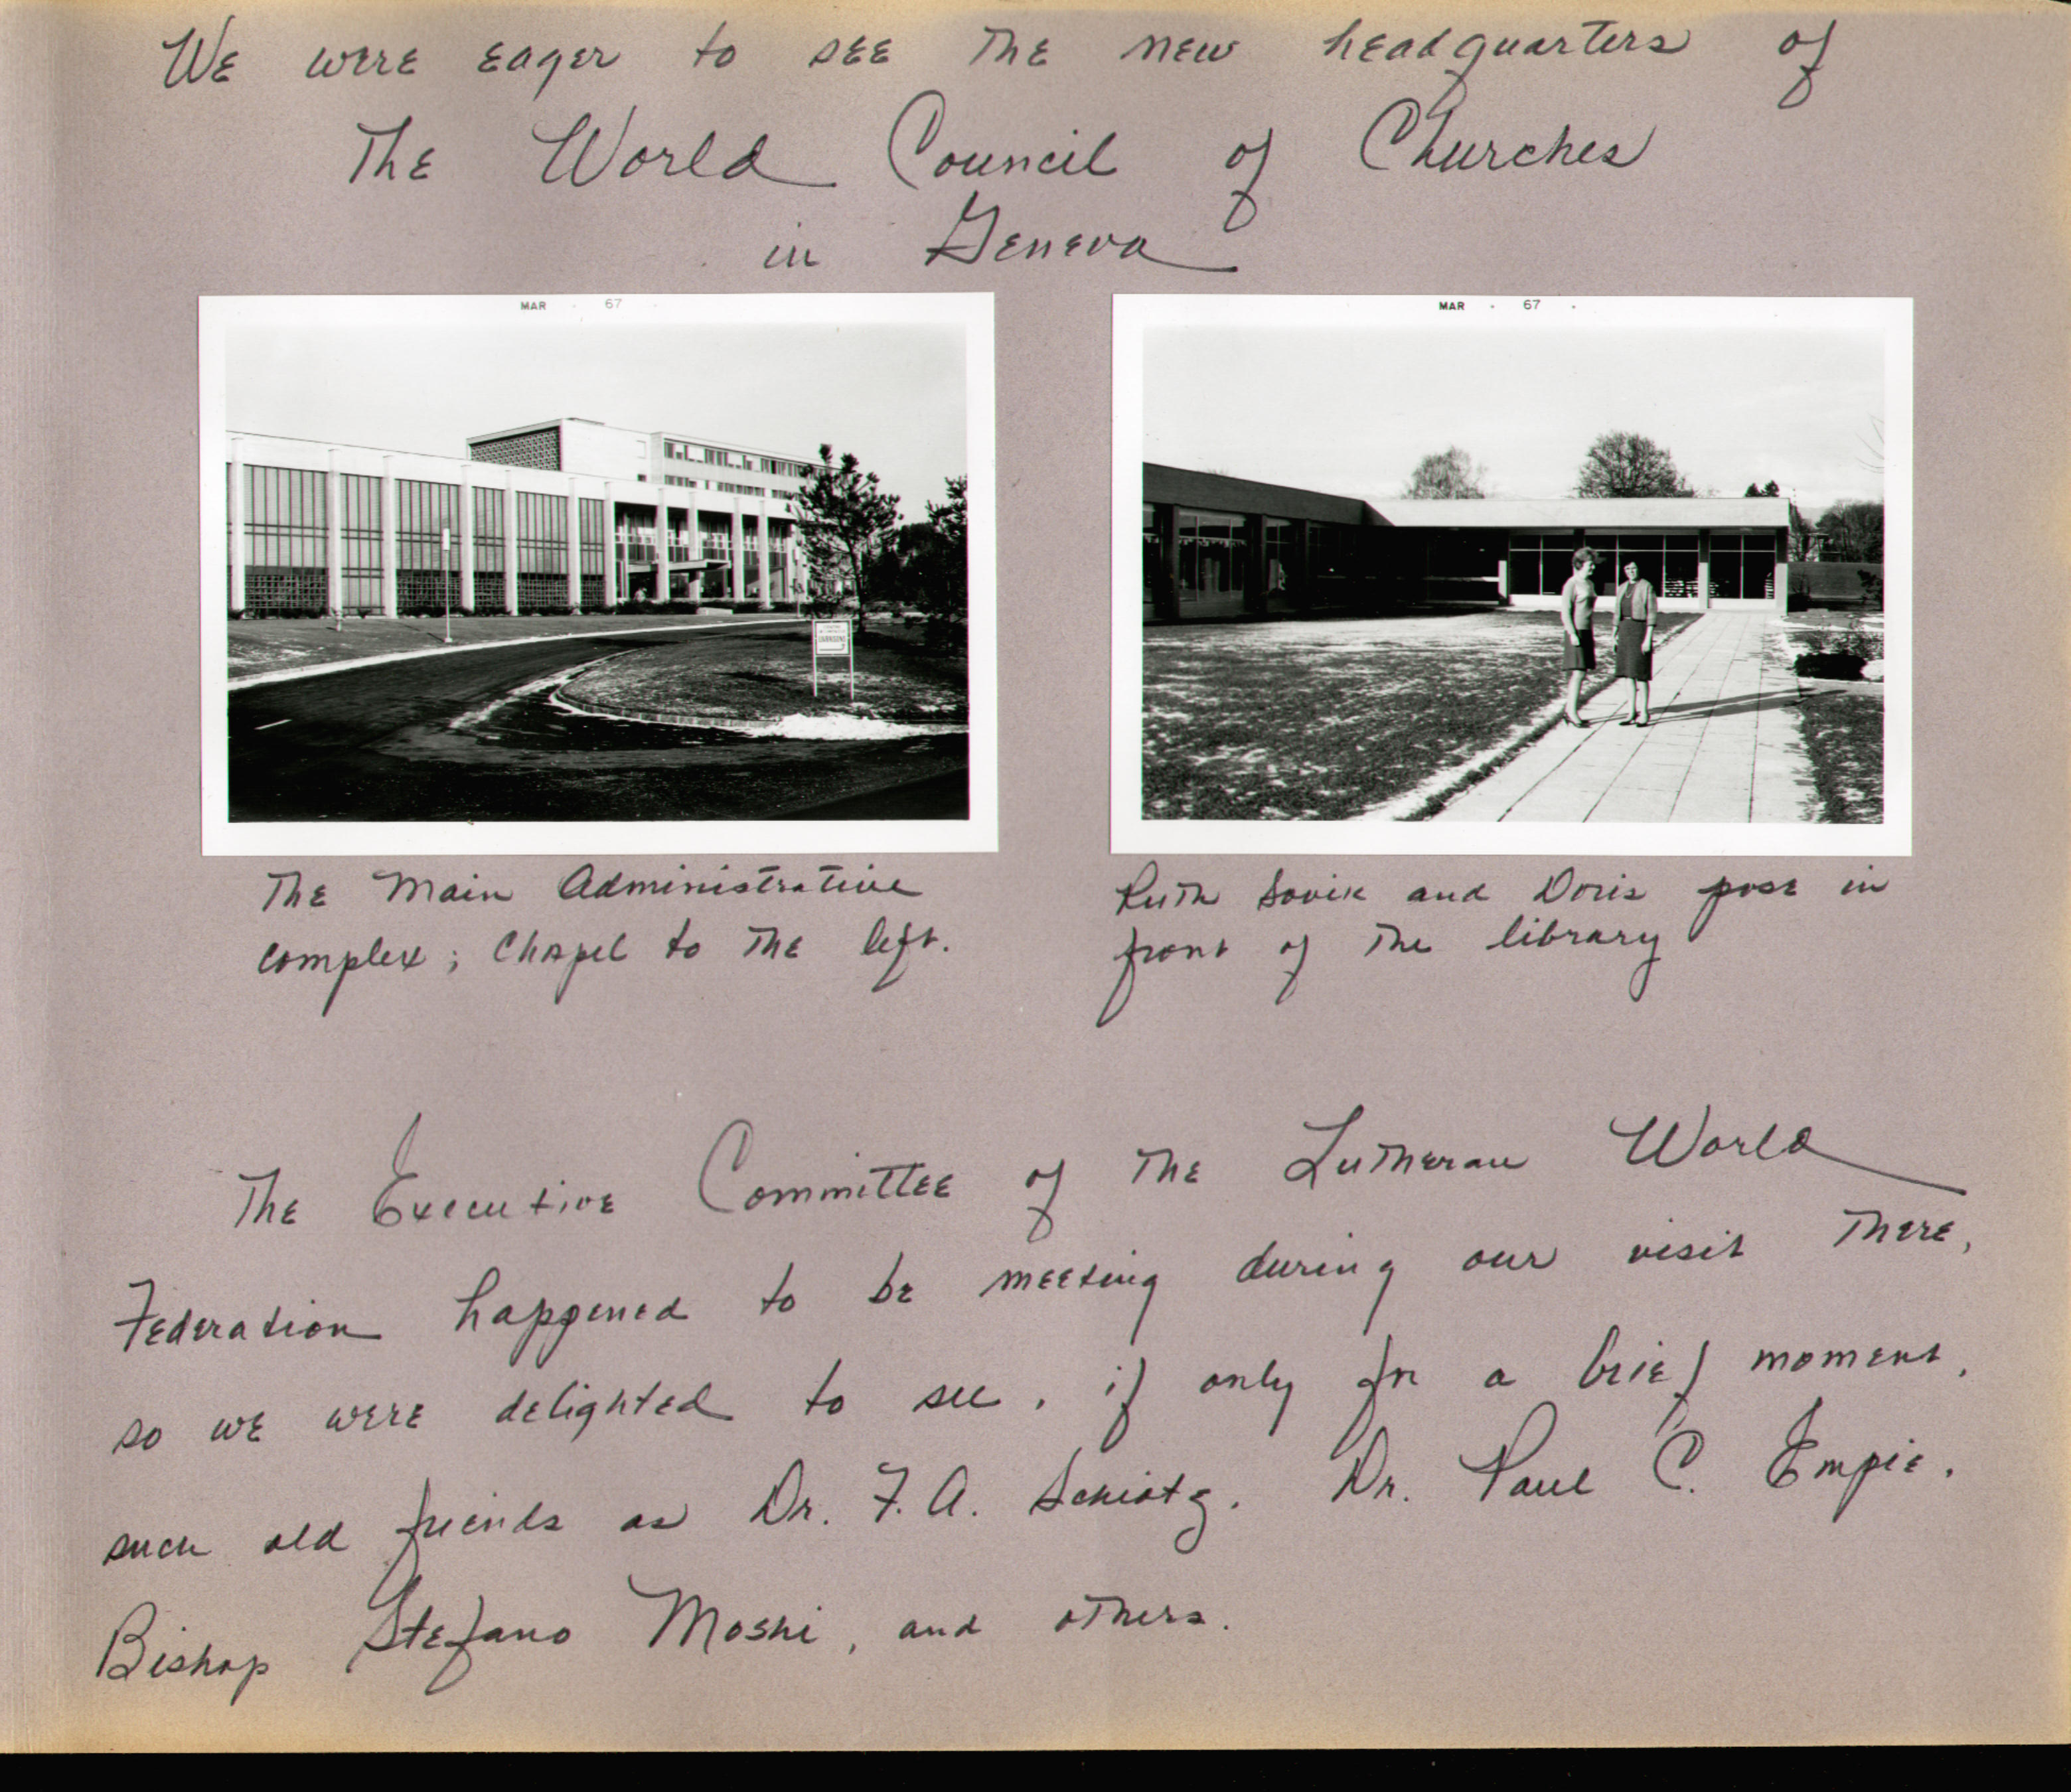 We were eager to see the new headquarters of
The World Council of Churches
in Geneva
MAR · 67 ·
MAR · 67 ·
The Main Administrative
complex; Chapel to the left.
Ruth Sovik and Doris pose in
front of the library
The Executive Committee of the Lutheran World
Federation happened to be meeting during our visit there,
so we were delighted to see, if only for a brief moment,
such old friends as Dr. F. A. Schiotz, Dr. Paul C. Empie,
Bishop Stefano Moshi, and others.